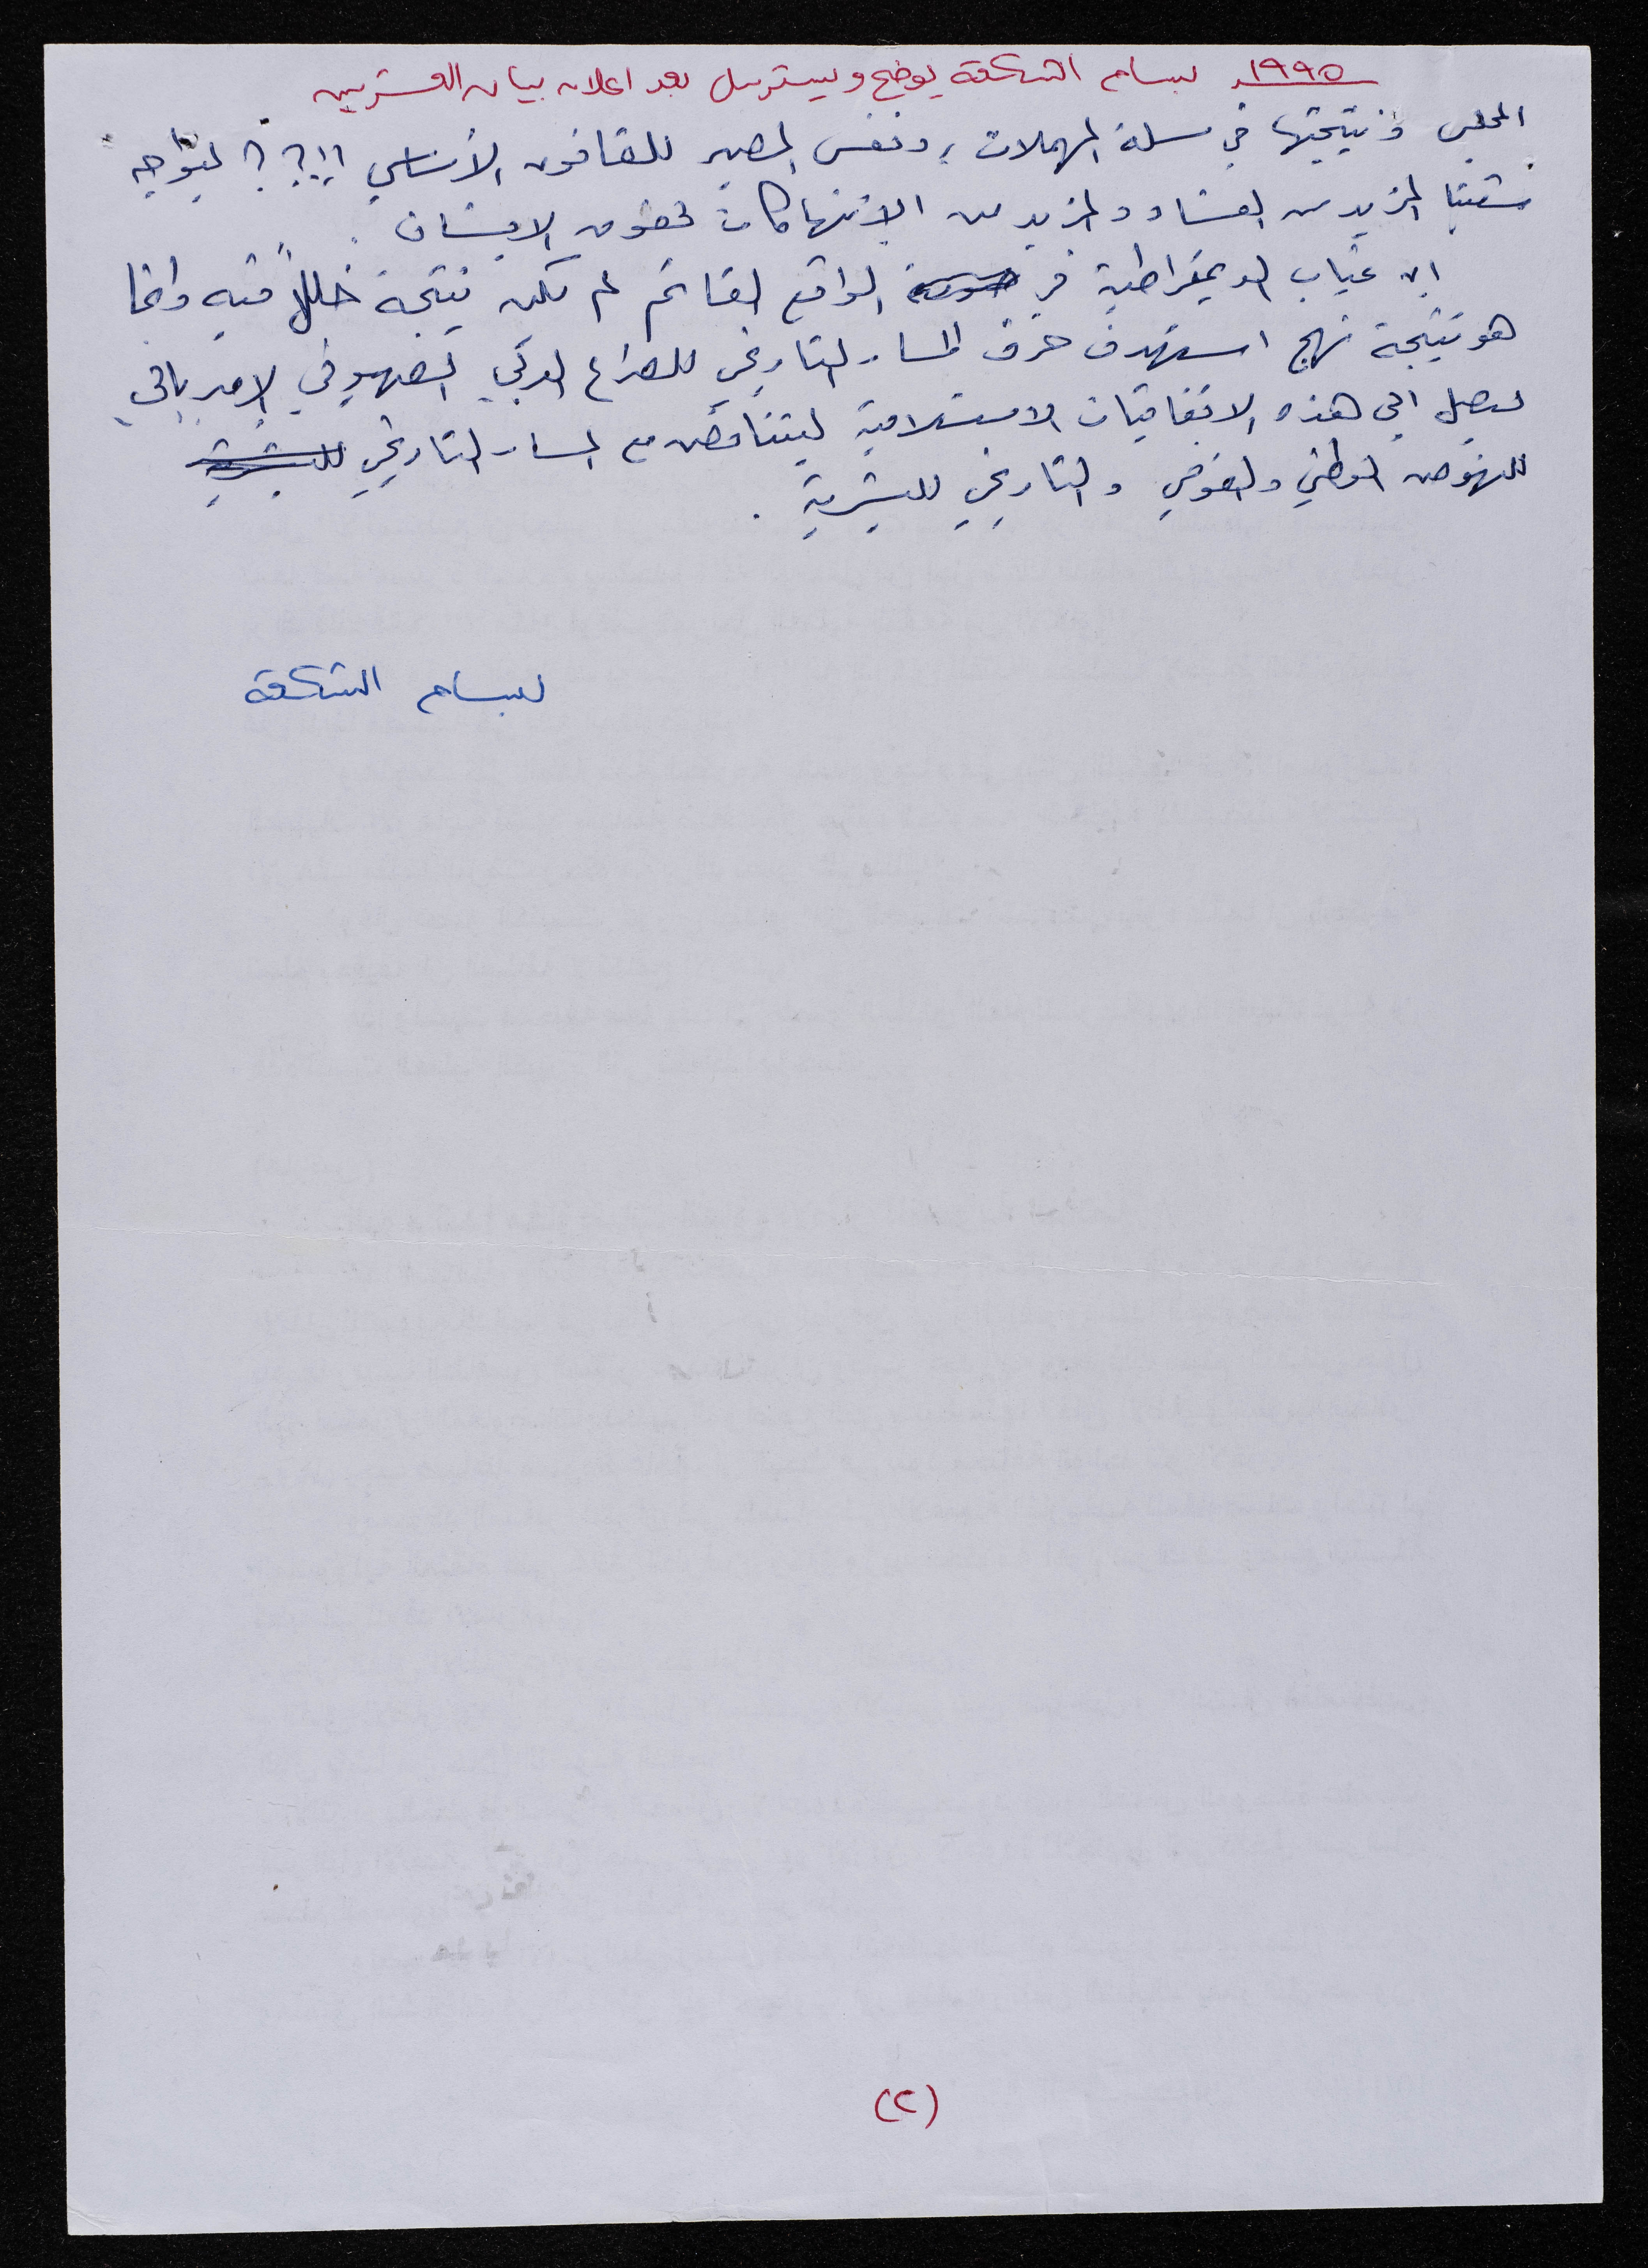 ١٩٩٥م بسام الشكعة يوضح ويسترسل بعد اعلان بيان العشرين
المجلس ونتيجتها في سلة المهملات، ونفس المصير للقانون الأساسي !!؟؟ ليواجه
شعبنا المزيد من الفساد والمزيد من الانتهاكات لحقوق الانسان .
ان غياب الديمقراطية في الواقع القائم لم تكن نتيجة خللاً فيه وانما
هو نتيجة نهج استهدف حرف المسار التاريخي للصراع العربي الصهيوني الامبريالي
ليصل الى هذه الاتفاقيات الاستسلامية ليتناقض مع المسار التاريخي للبشرية
للنهوض الوطني والقومي والتاريخي للبشرية .
بسام الشكعة
(٢)